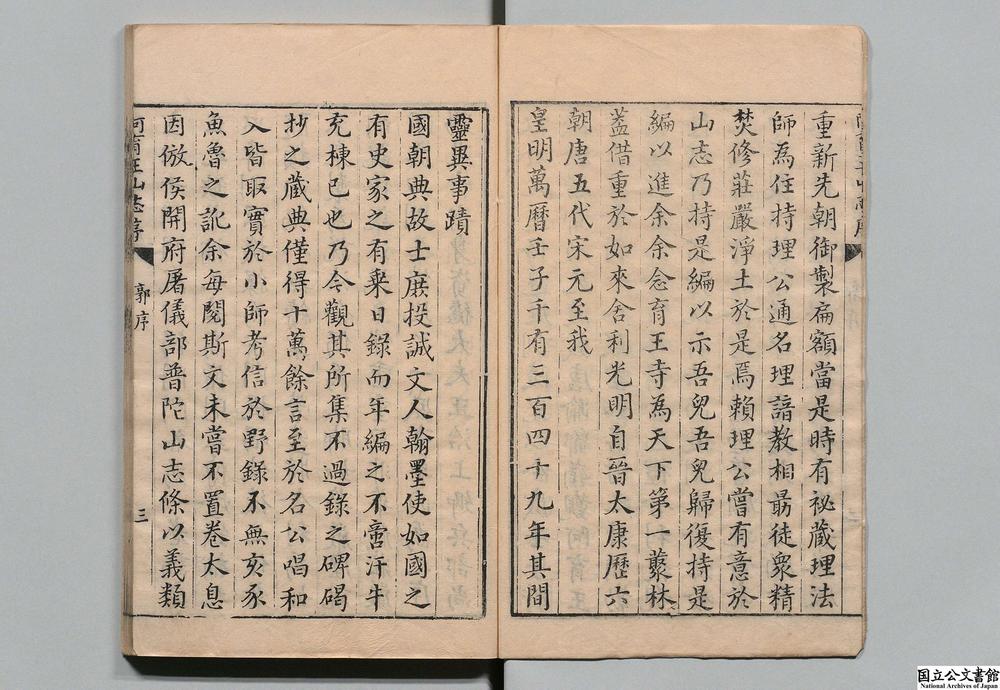 重新先朝御製扁額當是時有祕藏理法
師為住持理公通名理諳教相最徒衆精
焚修莊嚴淨土於是焉賴理公嘗有意於
山志乃持是編以示吾兒吾兒歸復持是
編以進余余念育王寺為天下第一叢林
葢借重於如來舍利光明自晉太康歷六
朝唐五代宋元至我
皇明萬曆壬子千有三百四十九年其間
靈異事蹟
國朝典故士庶投誠文人翰墨使如國之
有史家之有乗日錄而年編之不啻汗牛
充棟已也乃今觀其所集不過錄之碑碣
抄之藏典僅得十萬餘言至於名公唱和
入皆取實於小師考信於野錄不無亥豕
魚魯之訛余每閱斯文未嘗不置卷太息
因倣侯開府屠儀部普陀山志條以義類
阿育王山志序
郭序
三
国立公文書館
National Archives of Japan